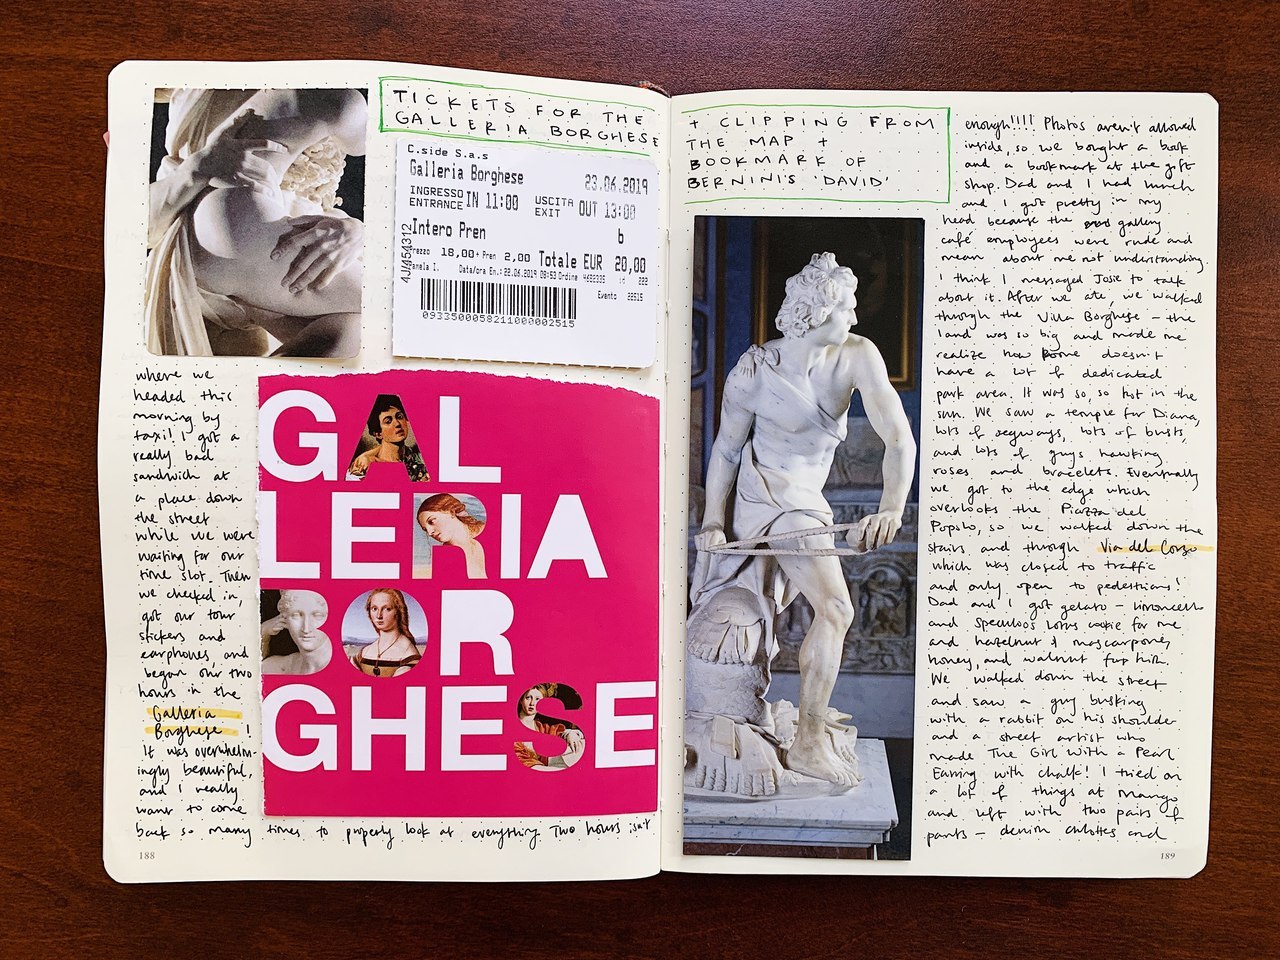 TICKETS FOR THE
GALLERIA BORGHESE
C.side S.a.s
Galleria Borghese
23.06.2019
INGRESSO
ENTRANCE IN 11:00
USCITA
EXIT OUT 13:00
Intero Pren
b
18,00+ Pren 2,00 Totale EUR 20,00
Data/ora En.: 22.06.2019 09:53 Ordine
Evento 22515
4J/454312
0933500058211000002515
where we
headed this
morning by
taxi! I got a
really bad
sandwich at
a place down
the street
while we were
waiting for our
time slot. Then
we checked in,
got our tour
stickers and
earphones, and
began our two
hours in the
Galleria
Borghese !
It was overwhelm-
ingly beautiful,
and I really
want to come
back so many times to properly look at everything. Two hours isn't
GAL
LERIA
BOR
GHESE
188
+ CLIPPING FROM
THE MAP +
BOOKMARK OF
BERNINI'S 'DAVID'
enough!!!! Photos aren't allowed
inside, so we bought a book
and a bookmark at the gift
shop. Dad and I had lunch
and I got pretty in my
head because the gallery
café employees were rude and
mean about me not understanding.
I think I messaged Josie to talk
about it. After we ate, we walked
through the Villa Borghese – the
land was so big and made me
realize how Rome doesn't
have a lot of dedicated
park area. It was so, so hot in the
sun. We saw a temple for Diana,
lots of segways, lots of busts,
and lots of guys hawking
roses and bracelets. Eventually
we got to the edge which
overlooks the Piazza del
Popolo, so we walked down the
stairs and through Via del Corso
which was closed to traffic
and only open to pedestrians!
Dad and I got gelato – limoncello
and speculoos Lotus cookie for me
and hazelnut & mascarpone,
honey, and walnut for him.
We walked down the street
and saw a guy busking
with a rabbit on his shoulder
and a street artist who
made The Girl With a Pearl
Earring with chalk! I tried on
a lot of things at Mango
and left with two pairs of
pants – denim culottes and
189